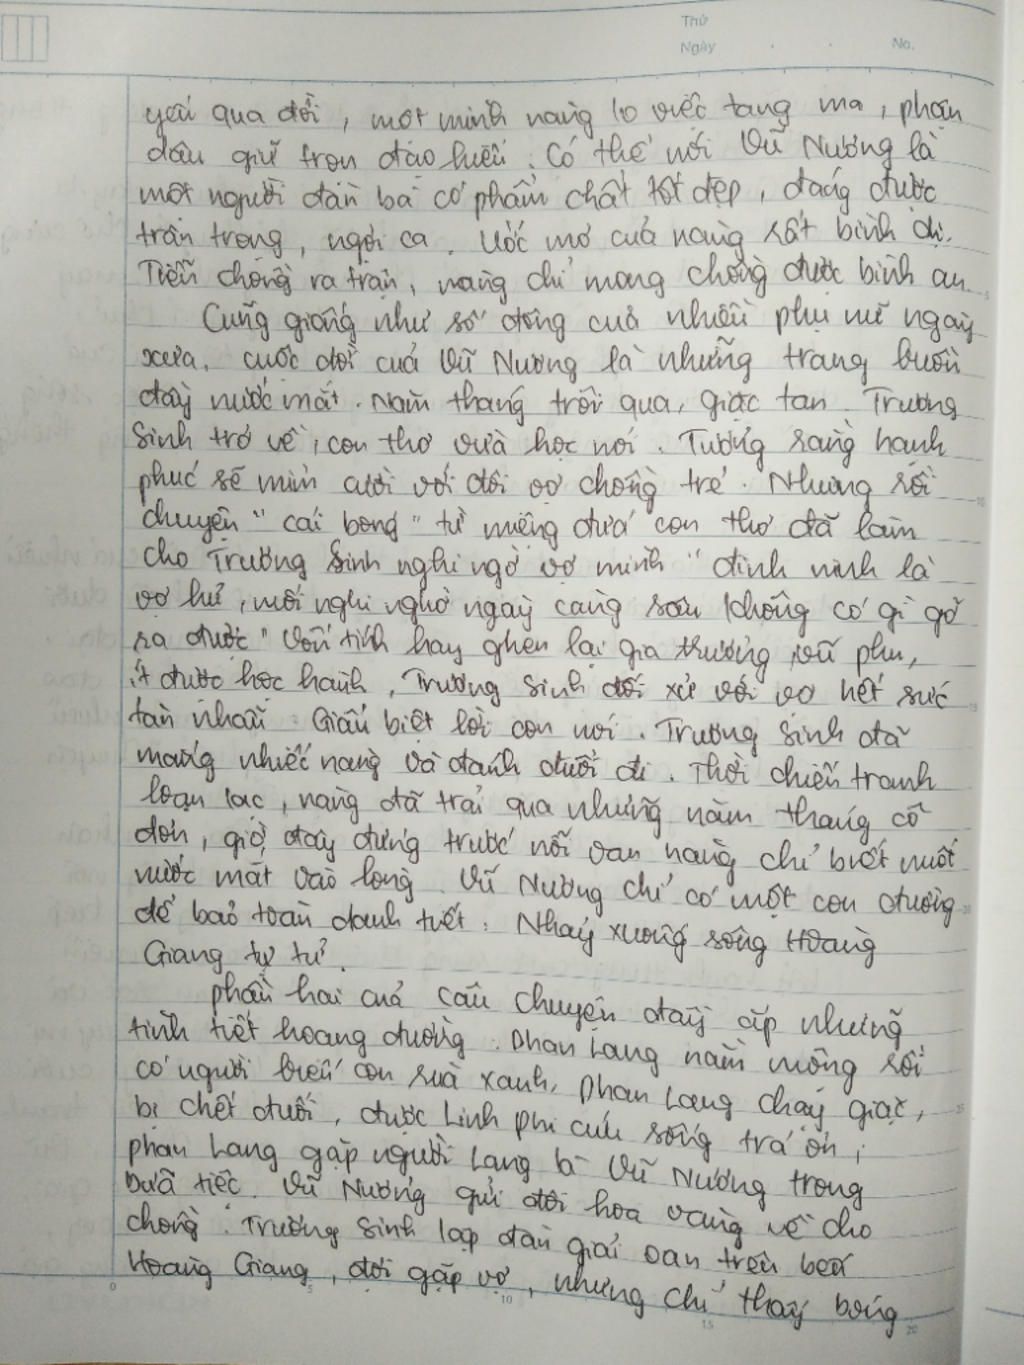 Thứ
Ngày . . No.
yếu qua đời, một minh nàng lo việc tang ma, phận
dâu giữ trọn đạo hiếu. Có thể nói Vũ Nương là
một người đàn bà có phẩm chất tốt đẹp, đáng được
trân trọng, ngợi ca. Ước mơ của nàng rất bình dị.
Tiễn chồng ra trận, nàng chỉ mong chồng được bình an.
Cũng giống như số đông của nhiều phụ nữ ngày
xưa, cuộc đời của Vũ Nương là những trang buồn
đầy nước mắt. Năm tháng trôi qua, giặc tan. Trương
Sinh trở về, con thơ vừa học nói. Tưởng rằng hạnh
phúc sẽ mỉm cười với đôi vợ chồng trẻ. Nhưng rồi
chuyện "cái bóng" từ miệng đứa con thơ đã làm
cho Trương Sinh nghi ngờ vợ mình "đinh ninh là
vợ hư, mối nghi ngờ ngày càng sâu không có gì gỡ
ra được" Vốn tính hay ghen lại gia trưởng, vũ phu,
ít được học hành, Trương Sinh đối xử với vợ hết sức
tàn nhẫn. Giấu biệt lời con nói. Trương Sinh đã
mắng nhiếc nàng và đánh đuổi đi. Thời chiến tranh
loạn lạc, nàng đã trải qua những năm tháng cô
đơn, giờ đây đứng trước nỗi oan nàng chỉ biết nuốt
nước mắt vào lòng. Vũ Nương chỉ có một con đường
để bảo toàn danh tiết: Nhảy xuống sông Hoàng
Giang tự tử.
Phần hai của câu chuyện đầy ắp những
tình tiết hoang đường. Phan Lang nằm mộng rồi
có người biếu con rùa xanh, Phan Lang chạy giặc,
bị chết đuối, được Linh Phi cứu sống trả ơn;
phan Lang gặp người làng là Vũ Nương trong
bữa tiệc. Vũ Nương gửi đôi hoa vàng về cho
chồng. Trương Sinh lập đàn giải oan trên bến
Hoàng Giang, đợi gặp vợ, nhưng chỉ thấy bóng
0 5 10 15 20